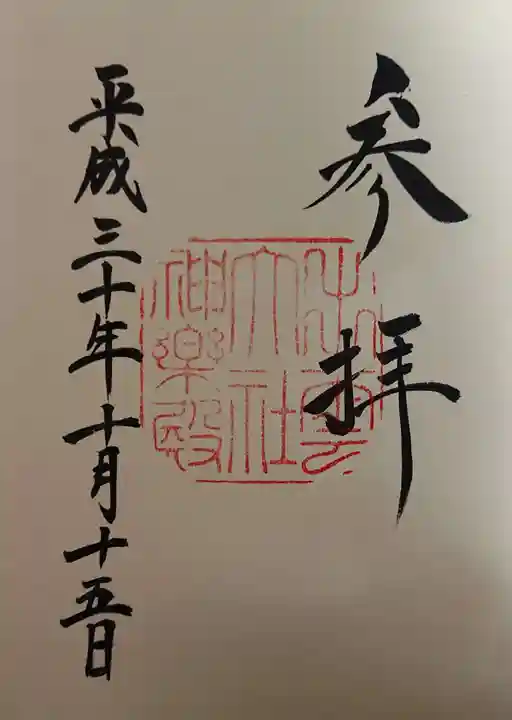 参拝
出雲
大社
神楽殿
平成三十年十月十五日